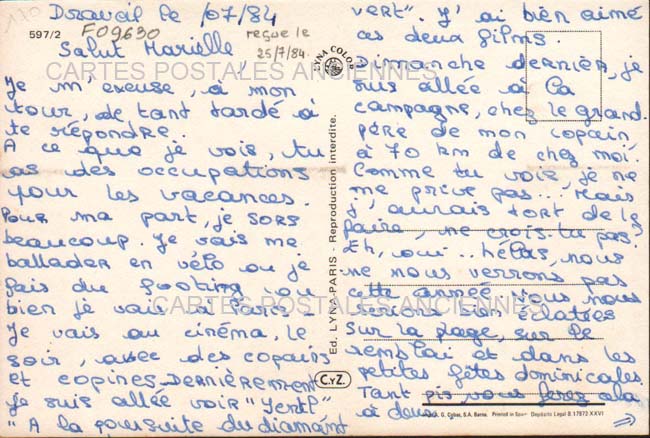 Draveil le /07/84
597/2
F09630
reçue le
25/7/84
Salut Marielle,
CARTES POSTALES ANCIENNES
Je m'excuse, à mon
tour, de tant tardé à
te répondre.
A ce que je vois, tu
as des occupations
pour les vacances.
Pour ma part, je sors
beaucoup. Je vais me
ballader en vélo ou je
fais du footing ou
bien je vais à Paris.
CARTES POSTALES ANCIENNES
Je vais au cinéma, le
soir, avec des copains
et copines. DERNIÈREMENT
je suis allée voir "Yentl"
"A la poursuite du diamant
LYNA COLOR
Ed. LYNA-PARIS - Reproduction interdite.
C.YZ.
vert". J'ai bien aimé
ces deux films.
Dimanche dernier, je
suis allée à la
campagne, chez le grand
père de mon copain,
à 70 km de chez moi.
Comme tu vois, je ne
me prive pas.. Mais
j'aurais tort de le
faire, ne crois-tu pas?
Eh, oui.. hélas, nous
ne nous verrons pas
cette année. Nous nous
serions bien éclatées
sur la plage, sur le
remblai et dans les
petites fêtes dominicales.
Tant pis vous ferez cela
à deux.
G. Cobas, S.A. Barna. Printed in Spain Depósito Legal B. 17972 XXVI